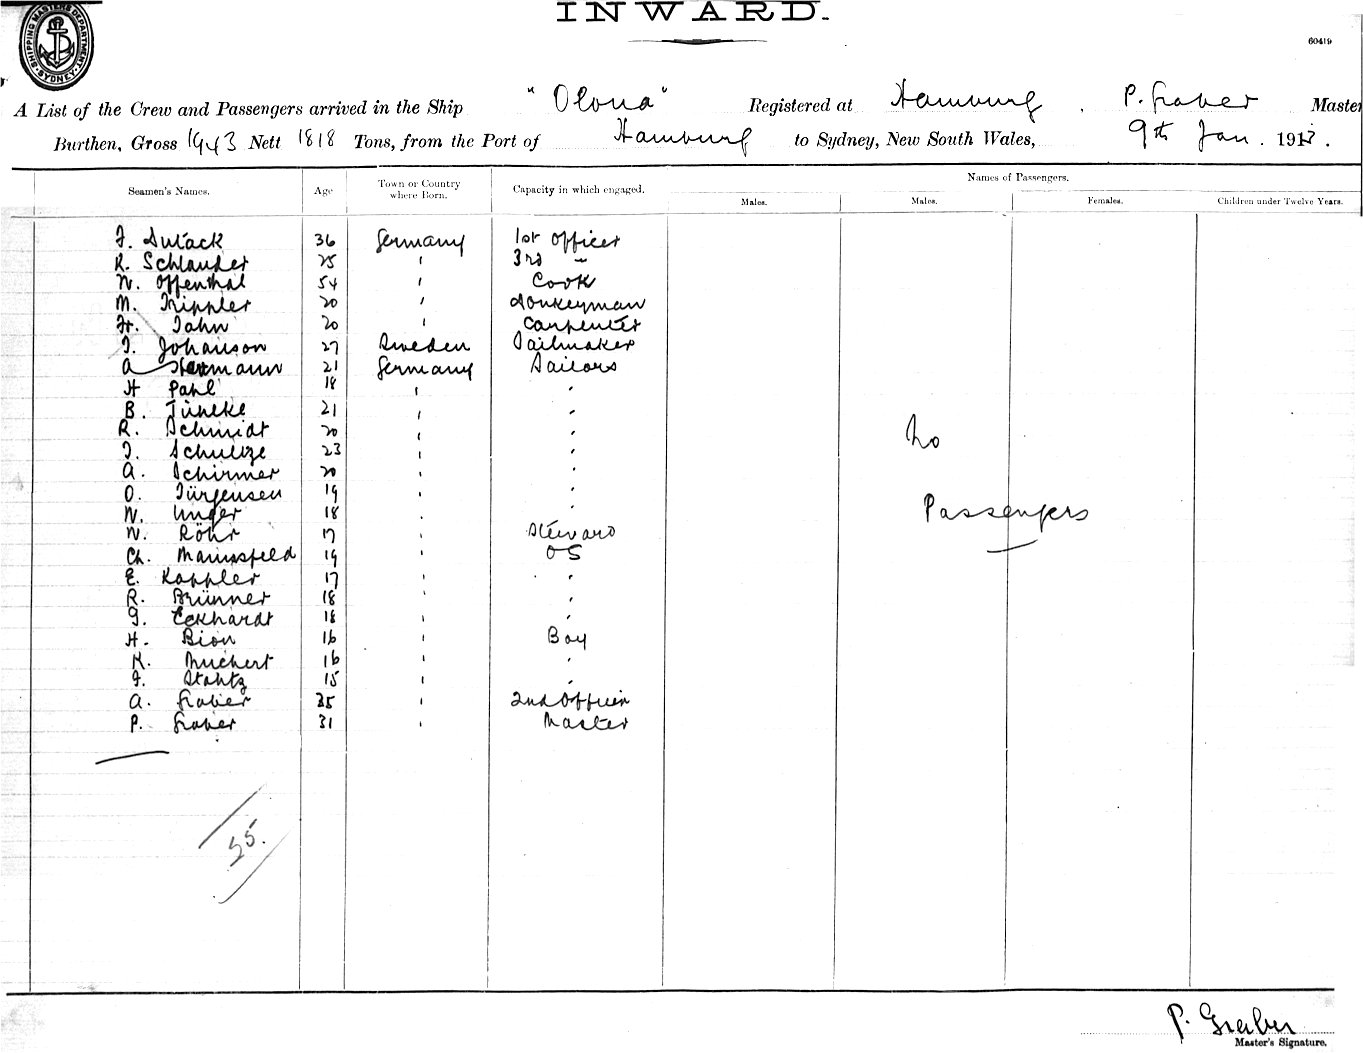 INWARD.
SHIPPING MASTERS DEPARTMENT SYDNEY
60419
A List of the Crew and Passengers arrived in the Ship "Olona" Registered at Hamburg, P. Graber Master
Burthen, Gross 1943 Nett 1818 Tons, from the Port of Hamburg to Sydney, New South Wales, 9th Jan. 191
Seamen's Names. Age Town or Country where Born. Capacity in which engaged. Names of Passengers.
Males. Males. Females. Children under Twelve Years.
36 Germany 1st Officer
K. Schlander 25 " 3rd "
W. Offenthal 54 " Cook
M. Trippler 20 " Donkeyman
H. Jahn 20 " Carpenter
J. Johanson 27 Sweden Sailmaker
A 21 Germany Sailors
H Pahl 18 " "
B. 21 " "
R. Schmidt 20 " "
J. Schulze 23 " "
A. Schirmer 20 " "
O. Jürgensen 19 " "
W. Unger 18 " "
W. Röhr 17 " Steward
Ch. 19 " OS
E. Kappler 17 " "
R. Brünner 18 " "
G. Eckhardt 18 " "
H. Bion 16 " Boy
K. 16 " "
F. 15 " "
A. Graber 35 " 2nd Officer
P. Graber 31 " Master
No
Passengers
25.
P. Graber
Master's Signature.